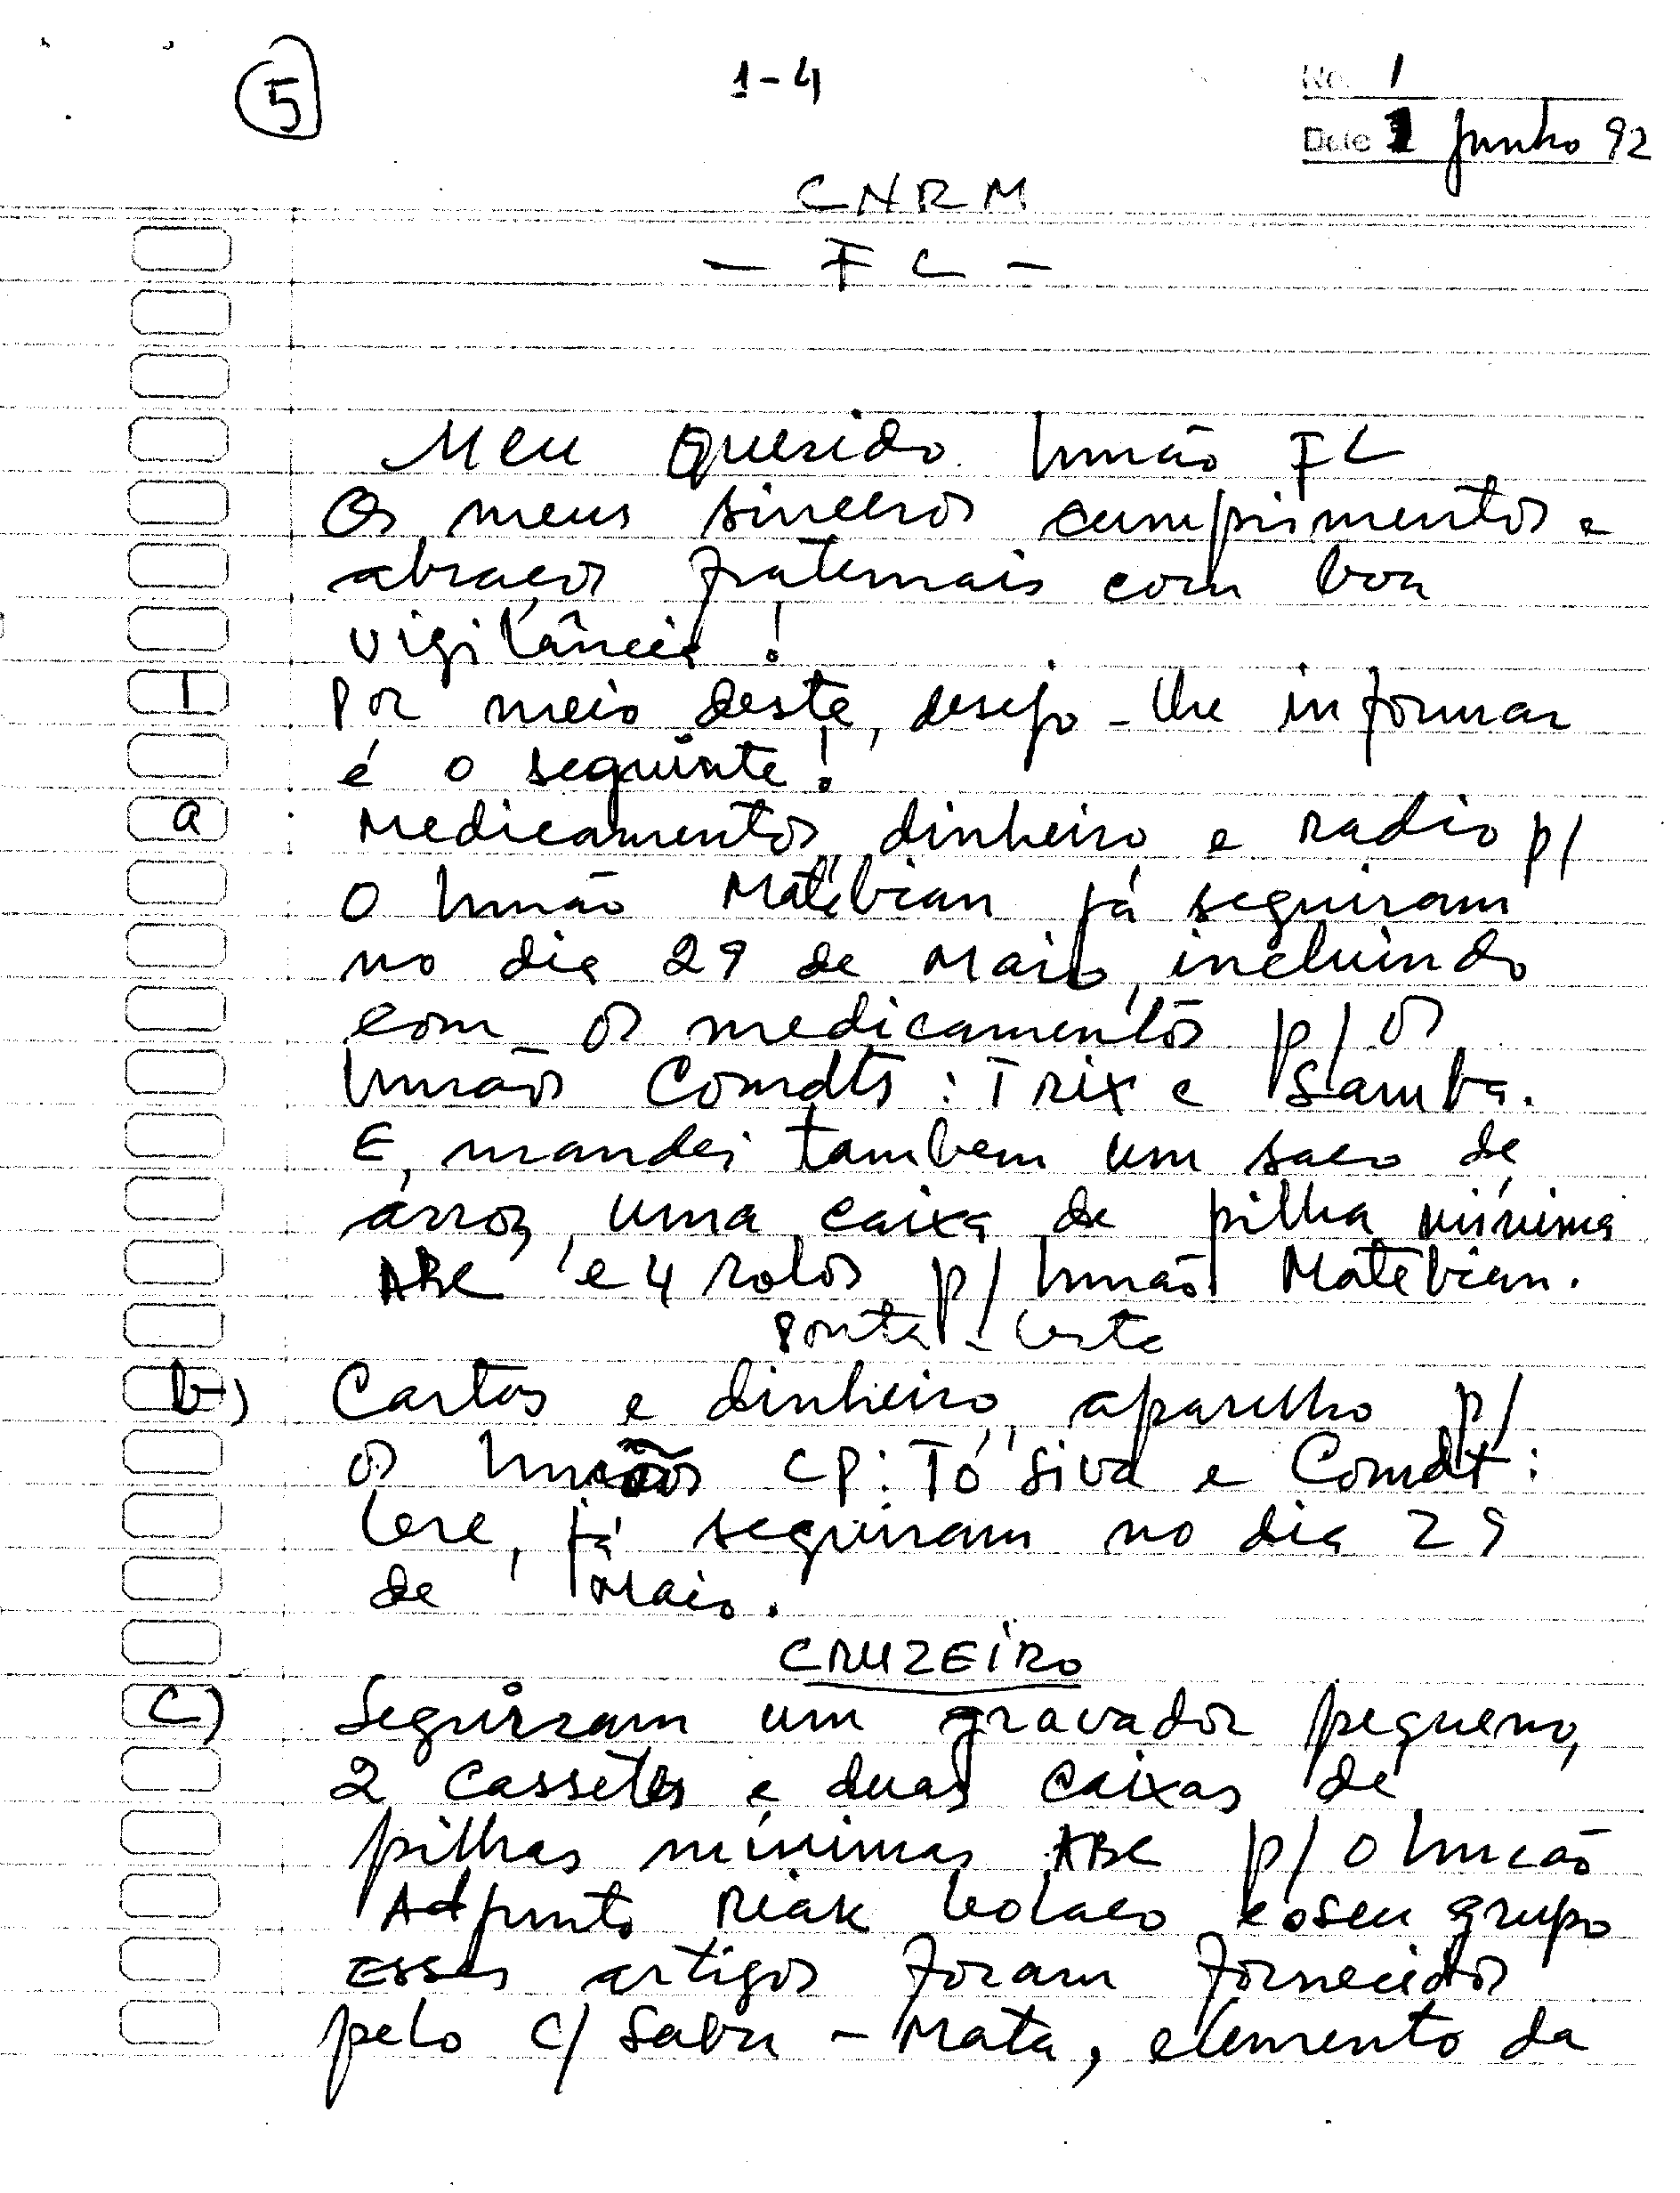 5
1-4
No. 1
Date 1 Junho 92
CNRM
- FC -
Meu Querido Irmão FC
Os meus sinceros cumprimentos e
abraços fraternais com boa
vigilância!
I Por meio deste, desejo-lhe informar
é o seguinte:
a Medicamentos, dinheiro e radio p/
o Irmão Matebian já seguiram
no dia 29 de Maio, incluindo
com os medicamentos p/ os
Irmãos Comdts: Trix e Samba.
E, mandei tambem um saco de
arroz, uma caixa de pilha mínima
ABC e 4 rolos p/ Irmão Matebian.
Ponta-Leste
b) Cartas e dinheiro, aparelho p/
os Irmãos CP: Tó Siva e Comdt:
Lere, já seguiram no dia 29
de Maio.
CRUZEIRO
c) Seguiram um gravador pequeno,
2 cassetes e duas caixas de
pilhas mínimas ABC p/ o Irmão
Adjunto Riak Leolaco e o seu grupo
Esses artigos foram fornecidos
pelo C/ Sabu-Mata, elemento da